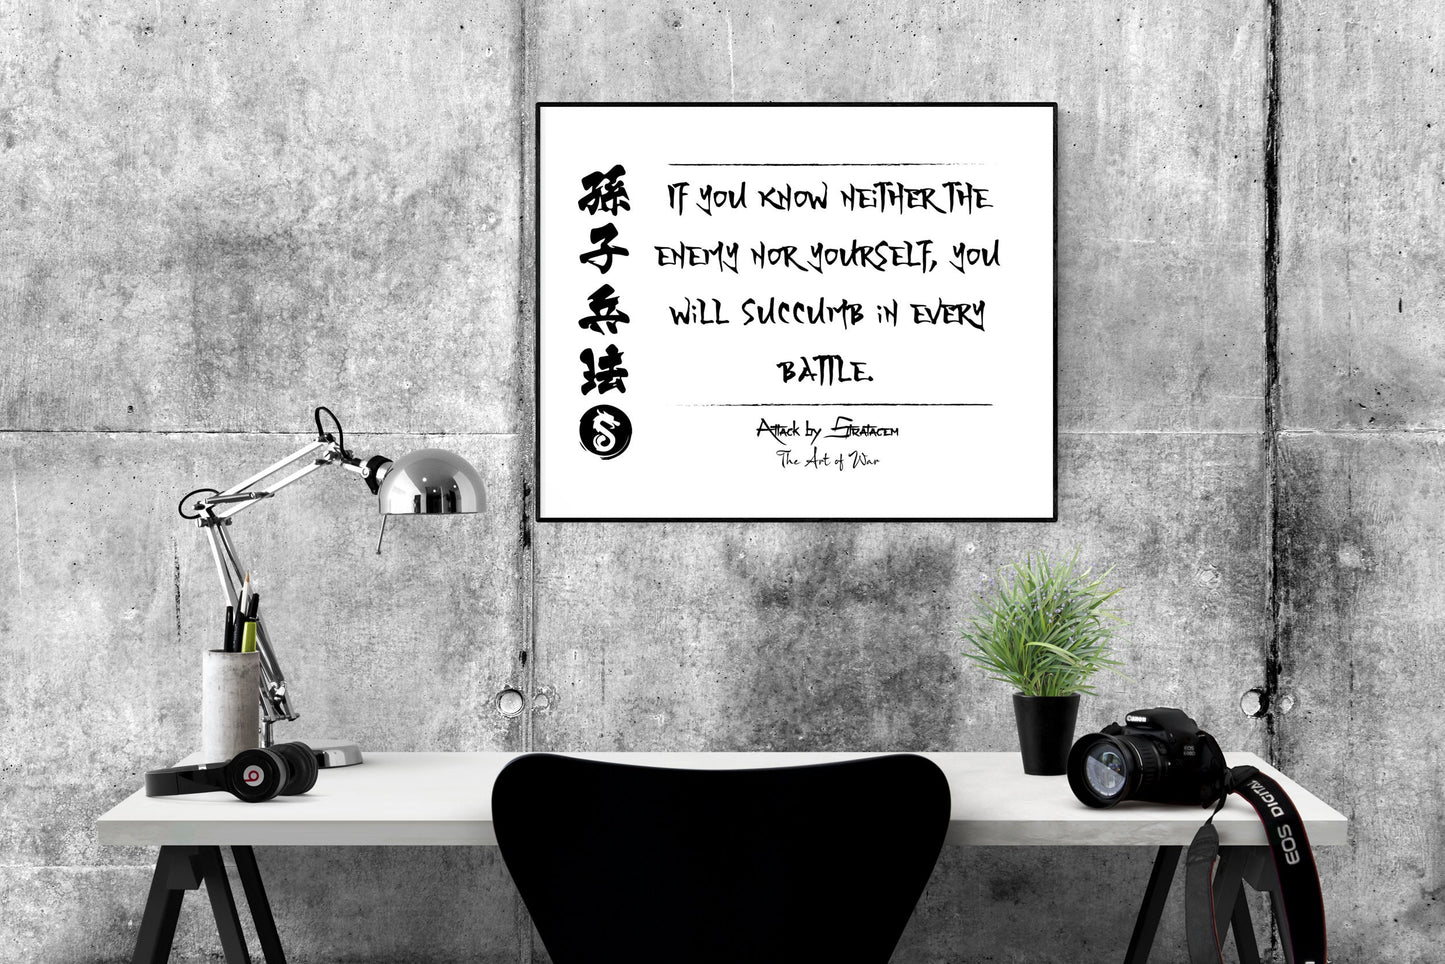 孫子兵法
IF YOU KNOW NEITHER THE
ENEMY NOR YOURSELF, YOU
WILL SUCCUMB IN EVERY
BATTLE.
Attack by Stratagem
The Art of War
Canon
EOS
600D
EOS DIGITAL